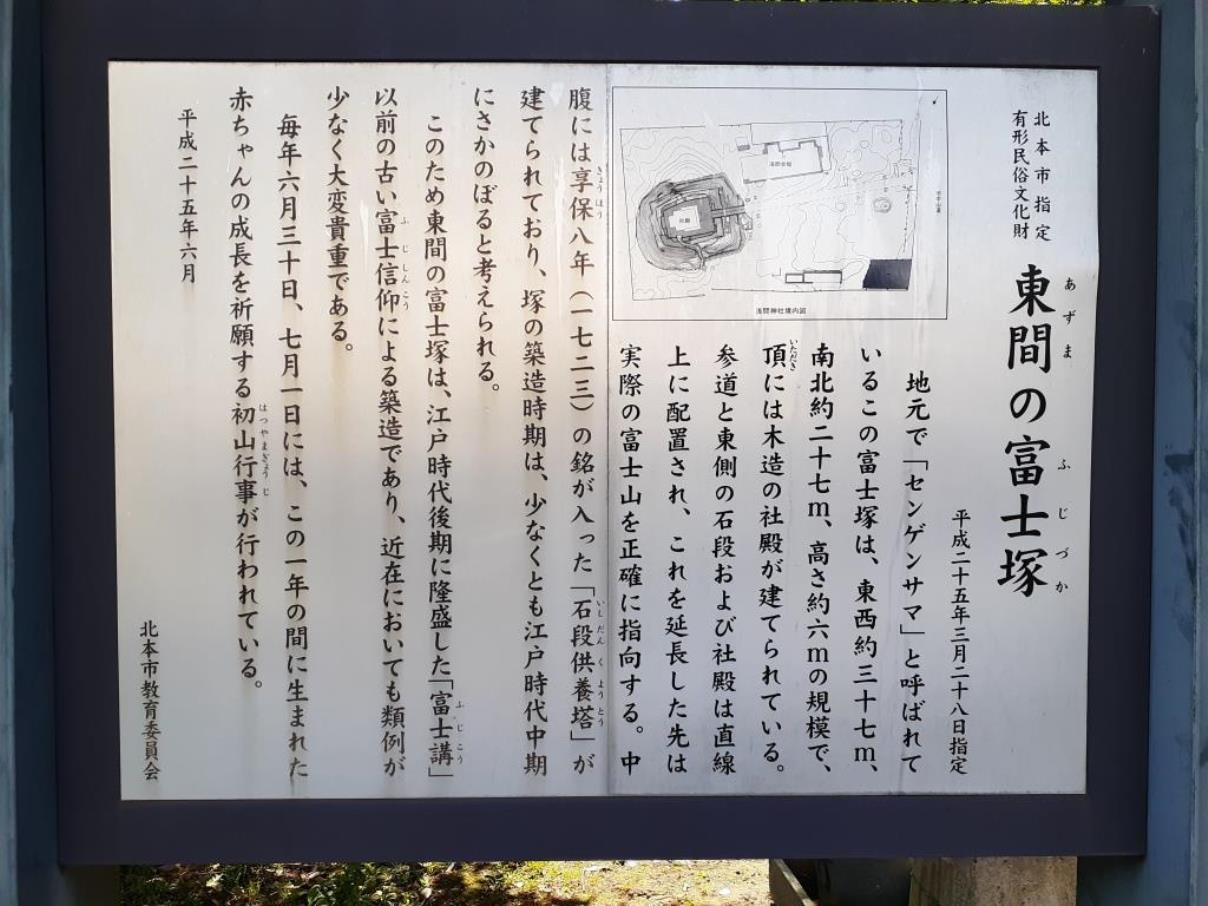 北本市指定
有形民俗文化財
東間の富士塚
あずま ふじづか
平成二十五年三月二十八日指定
地元で「センゲンサマ」と呼ばれて
いるこの富士塚は、東西約三十七m、
南北約二十七m、高さ約六mの規模で、
頂には木造の社殿が建てられている。
いただき
参道と東側の石段および社殿は直線
上に配置され、これを延長した先は
実際の富士山を正確に指向する。中
浅間神社境内図
腹には享保八年（一七二三）の銘が入った「石段供養塔」が
きょうほう いしだんくようとう
建てられており、塚の築造時期は、少なくとも江戸時代中期
にさかのぼると考えられる。
このため東間の富士塚は、江戸時代後期に隆盛した「富士講」
ふじこう
以前の古い富士信仰による築造であり、近在においても類例が
ふじしんこう
少なく大変貴重である。
毎年六月三十日、七月一日には、この一年の間に生まれた
赤ちゃんの成長を祈願する初山行事が行われている。
はつやまぎょうじ
平成二十五年六月
北本市教育委員会